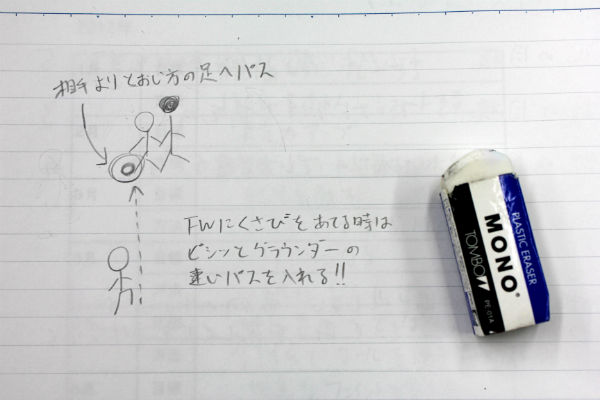 相手よりとおい方の足へパス
FWにくさびをあてる時は
ビシッとグラウンダーの
速いパスを入れる!!
PLASTIC ERASER
MONO®
TOMBOW
PE-01A